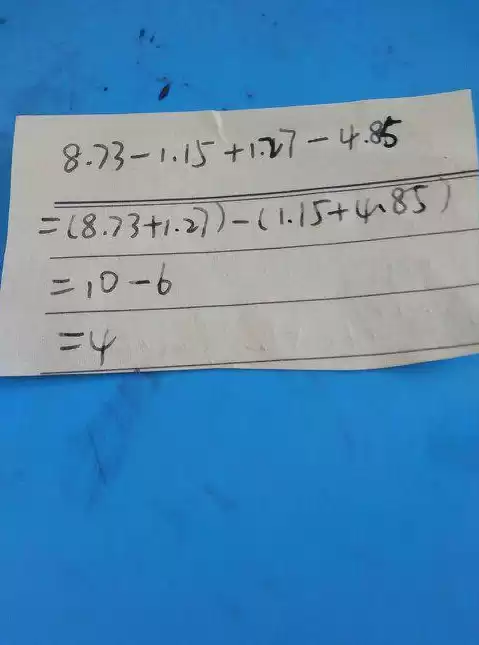 8.73-1.15+1.27-4.85
=(8.73+1.27)-(1.15+4.85)
=10-6
=4